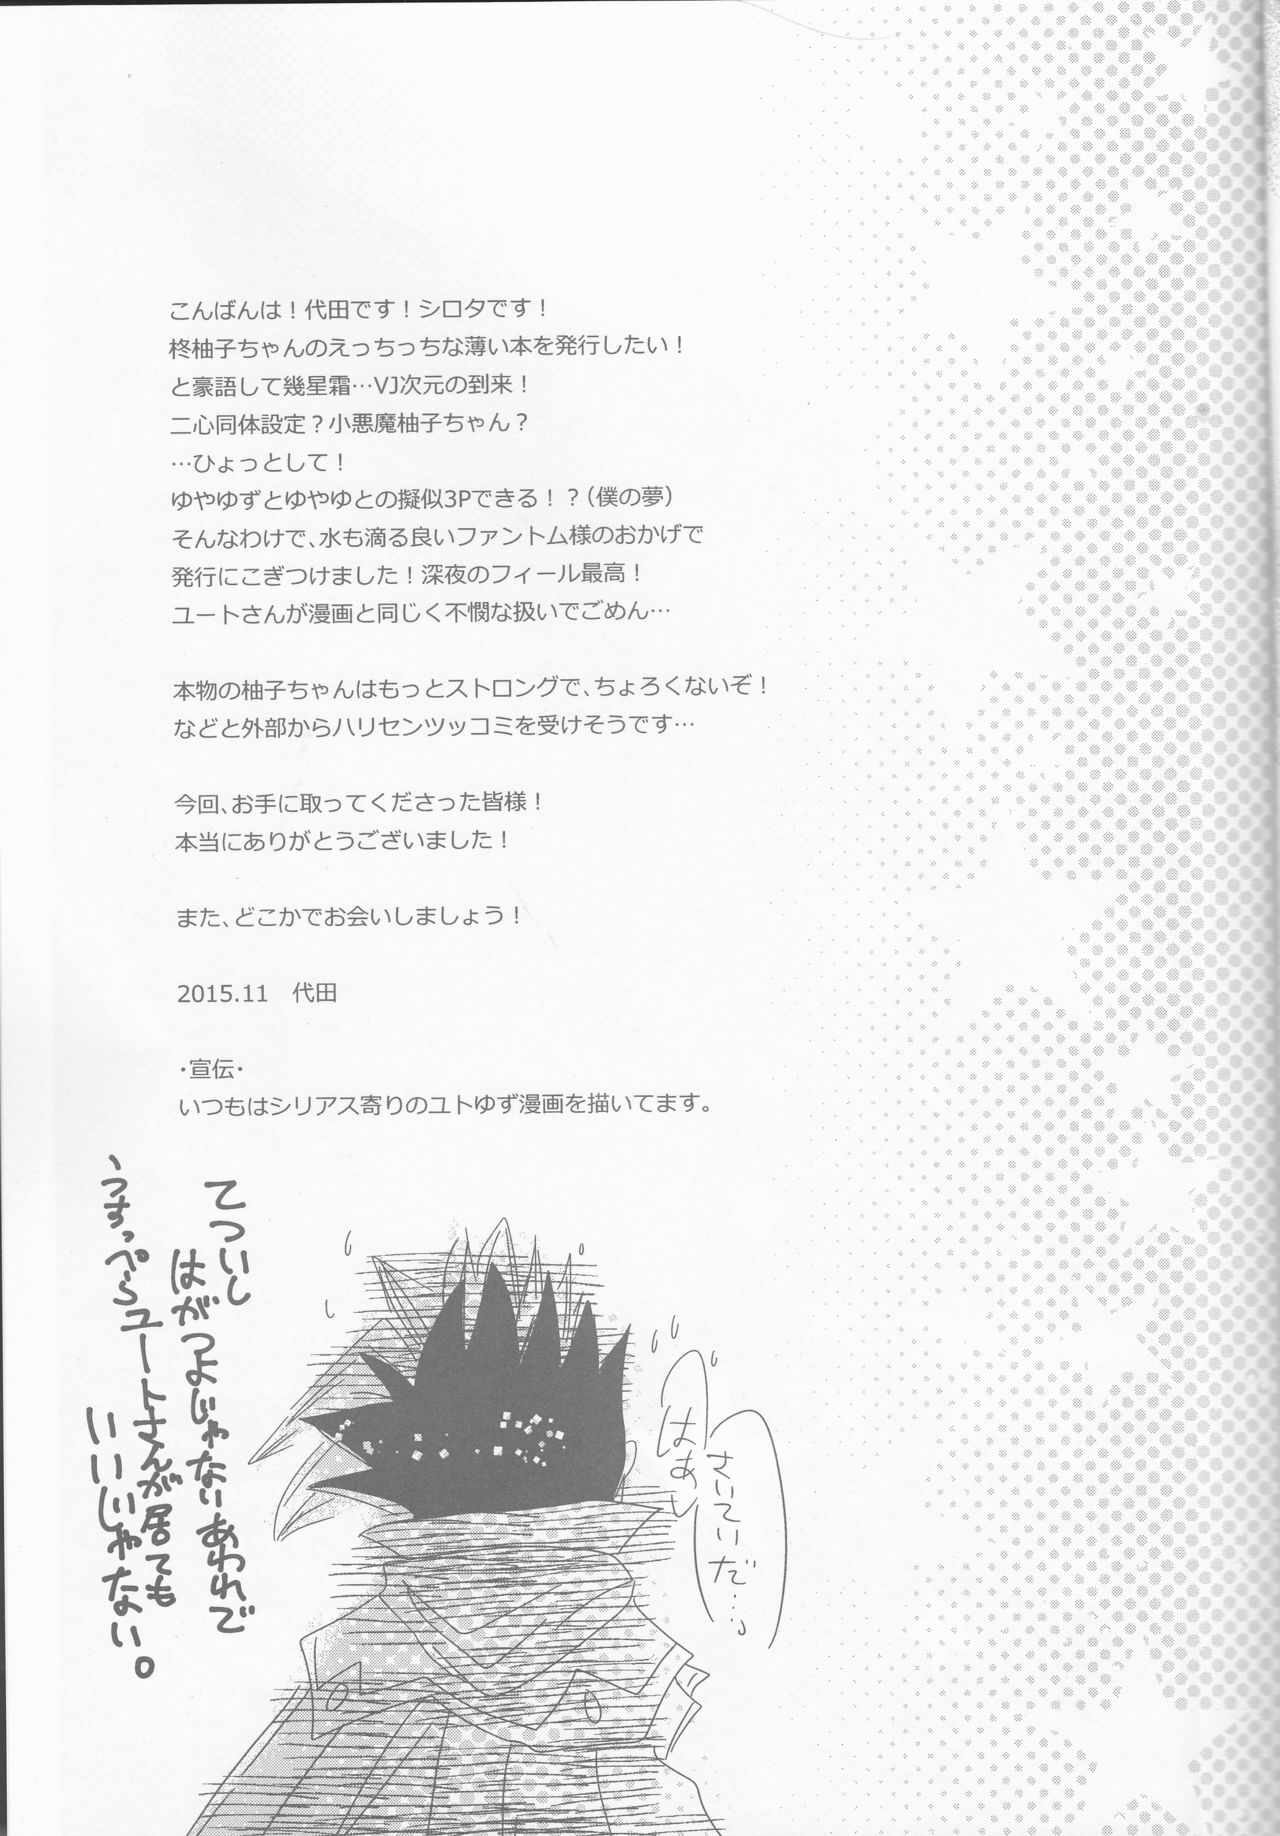 こんばんは！代田です！シロタです！
柊柚子ちゃんのえっちっちな薄い本を発行したい！
と豪語して幾星霜…VJ次元の到来！
二心同体設定？小悪魔柚子ちゃん？
…ひょっとして！
ゆやゆずとゆやゆとの擬似3Pできる！？（僕の夢）
そんなわけで、水も滴る良いファントム様のおかげで
発行にこぎつけました！深夜のフィール最高！
ユートさんが漫画と同じく不憫な扱いでごめん…
本物の柚子ちゃんはもっとストロングで、ちょろくないぞ！
などと外部からハリセンツッコミを受けそうです…
今回、お手に取ってくださった皆様！
本当にありがとうございました！
また、どこかでお会いしましょう！
2015.11　代田
・宣伝・
いつもはシリアス寄りのユトゆず漫画を描いてます。
はぁ
さいていだ…
てついし
はがつよじゃないあわれで
うすっぺらユートさんが居ても
いいじゃない。